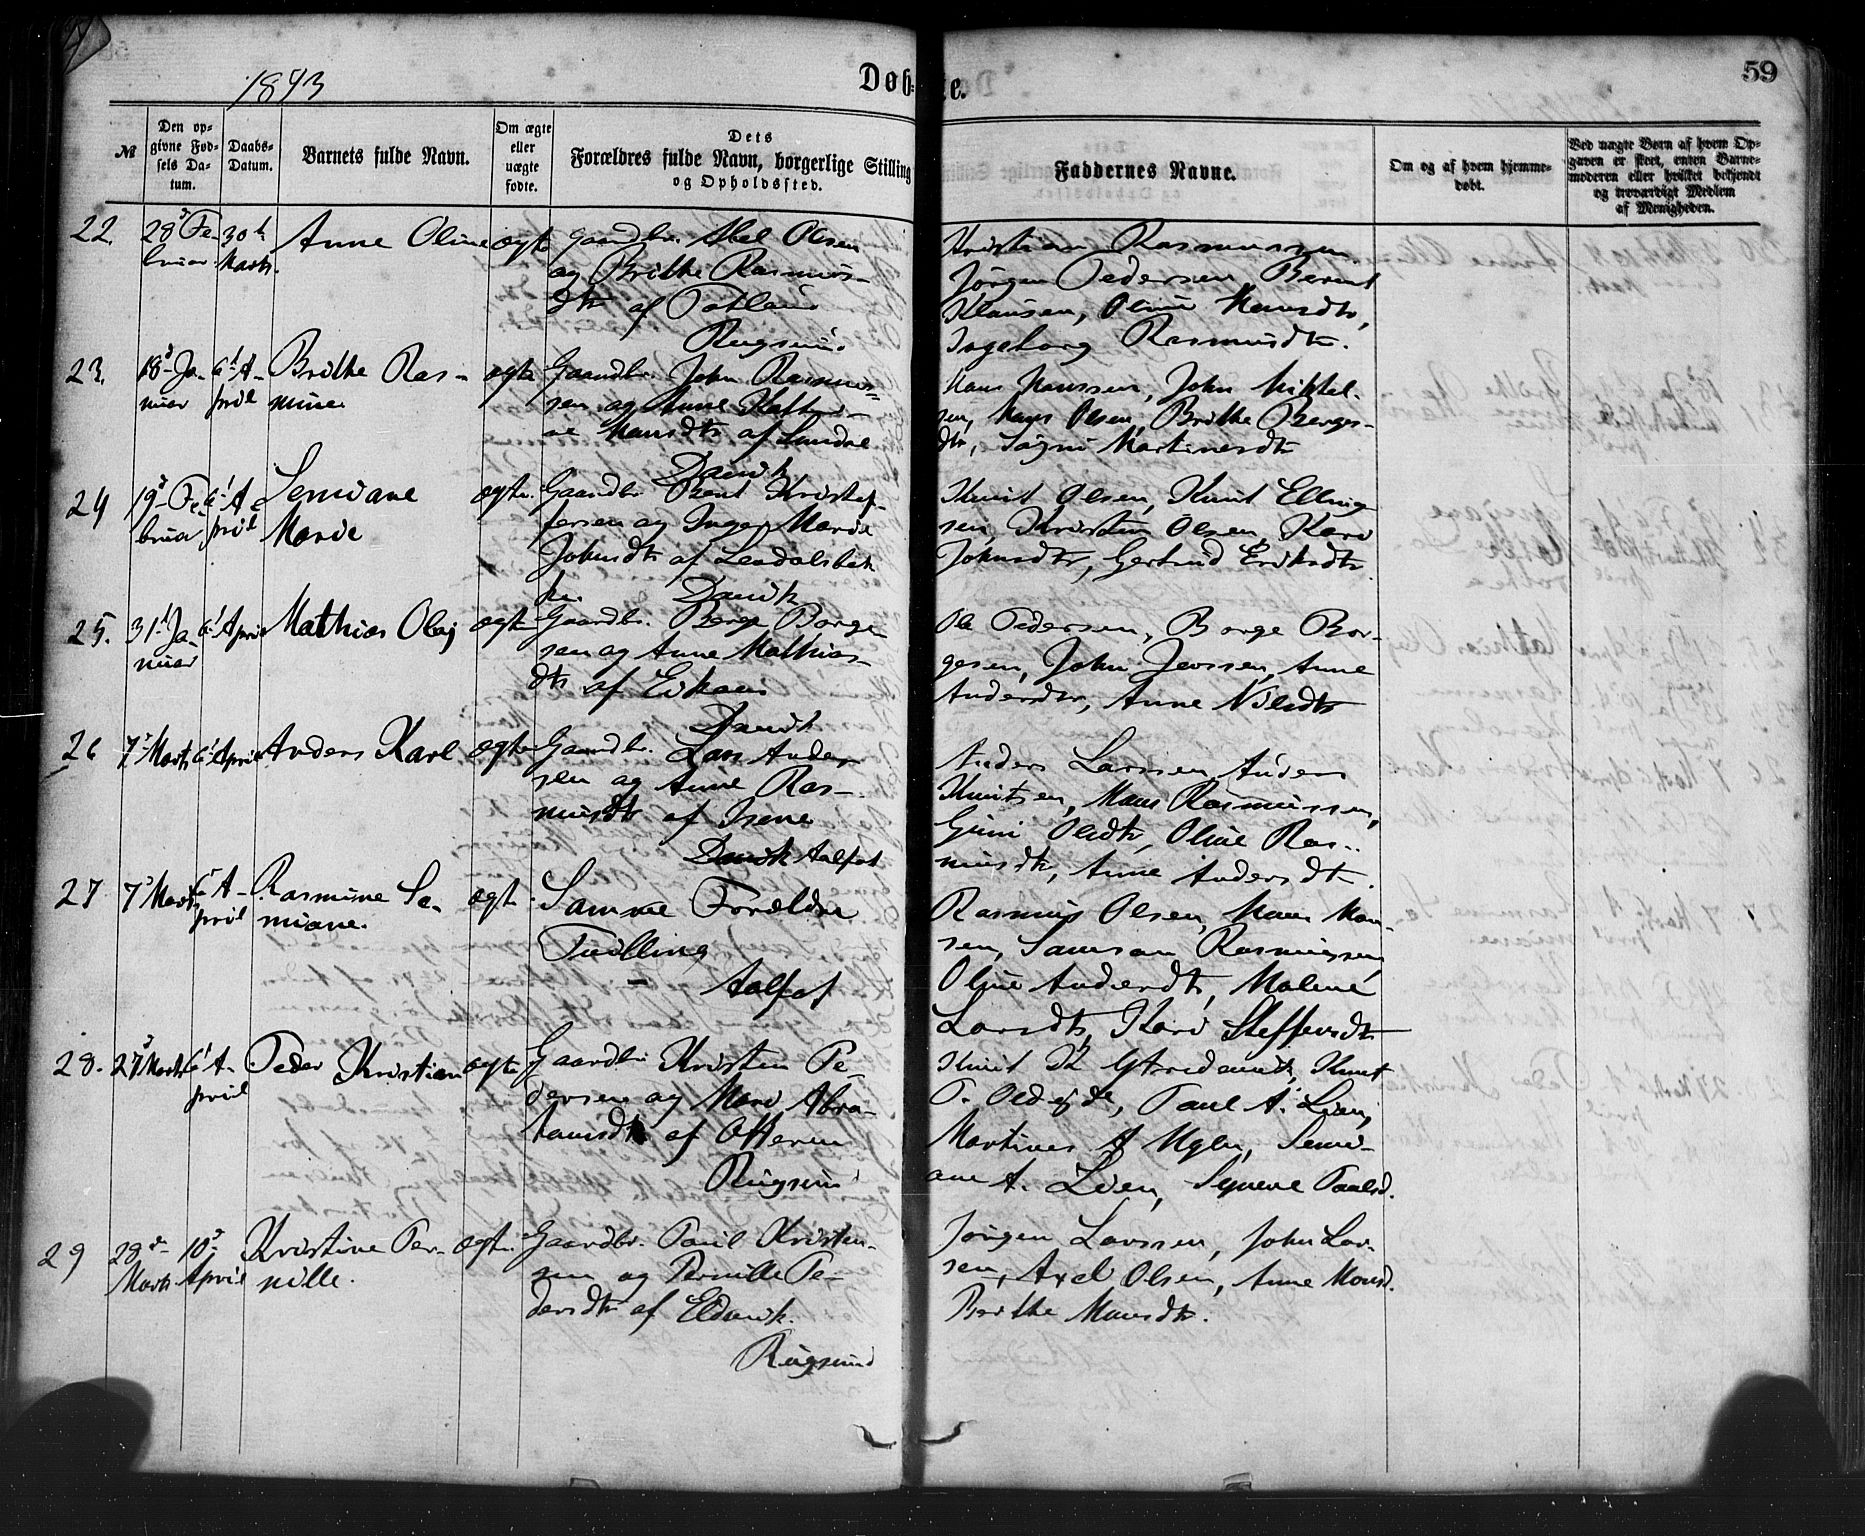 1873
Døb-
te.
59
№
Den op-
givne Fød-
sels Da-
tum.
Daabs-
Datum.
Barnets fulde Navn.
Om ægte
eller
uægte
fødte.
Dets
Forældres fulde Navn, borgerlige Stilling
og Opholdssted.
Faddernes Navne.
Om og af hvem hjemme-
døbt.
Ved uægte Børn af hvem Op-
gaven er skeet, enten Barne-
moderen eller hvilket bekjendt
og troværdigt Medlem
af Menigheden.
22.
28 Fe-
bruar
30te
Marts.
Anne Oline
ægte
Gaardbr. Abel Olsen
og Brithe Rasmus-
dtr af Totland
Rugsund
Kristian Rasmussen
Jörgen Pedersen Berent
Klausen, Oline Hansdtr,
Ingeborg Rasmusdtr.
23.
18 Ja-
nuar
6 A-
pril
Brithe Ras-
mine
ægte
Gaardbr. John Rasmus-
sen og Anne Kathri-
ne Hansdtr af
Davik
Hans Hanssen, John Mikkel-
sen, Hans Olsen, Brithe Berges-
dtr, Martinesdtr
24
19 Fe-
bruar
6 A-
pril
Semiane
Marie
ægte
Gaardbr. Bent Kristof-
fersen og Inger Marie
Johnsdtr af
Davik
Knut Olsen, Knut Elling-
sen, Kristian Olsen, Kari
Johnsdtr, Gertrud Eriksdtr
25.
31 Ja-
nuar
6 April
Mathias Olaj
ægte
Gaardbr. Børge Børge-
sen og Anne Mathias-
dtr af
Davik
Ole Pedersen, Børge Bør-
gesen, John Jenssen, Anne
Andersdtr, Anne Nilsdtr
26
7 Marts
6 April
Anders Karl
ægte
Gaardbr. Lars Ander-
sen og Anne Ras-
musdtr af Isene
Davik Aalfot
Anders Larssen, Anders
Knutsen, Hans Rasmussen,
Guni Olsdtr, Oline Ras-
musdtr, Anne Andersdtr.
27
7 Marts
6 A-
pril
Rasmine Se-
miane.
ægte
Samme Forældre
Tvilling
Aalfot
Rasmus Olsen, Hans Han-
sen, Samson Rasmussen
Oline Andersdtr, Malene
Larsdtr, Kari Steffensdtr
28.
27 Marts
6 A-
pril
Peder Kristian
ægte
Gaardbr. Kristen Pe-
dersen og Mari Abra-
hamsdtr af Otteren
Rugsund
Knut K. Knut
P. Oldeide, Paul A. Lien,
Martines A Myln, Semi-
ane A. Lien, Synneve Paulsd.
29
28de
Marts
10
April
Kristine Per-
nille.
ægte
Gaardbr. Paul Kristen-
sen og Pernille Pe-
dersdtr af Eldevik.
Rugsund
Jørgen Larssen, John Lar-
sen, Axel Olsen, Anne Monsd.
Brithe Monsdtr.